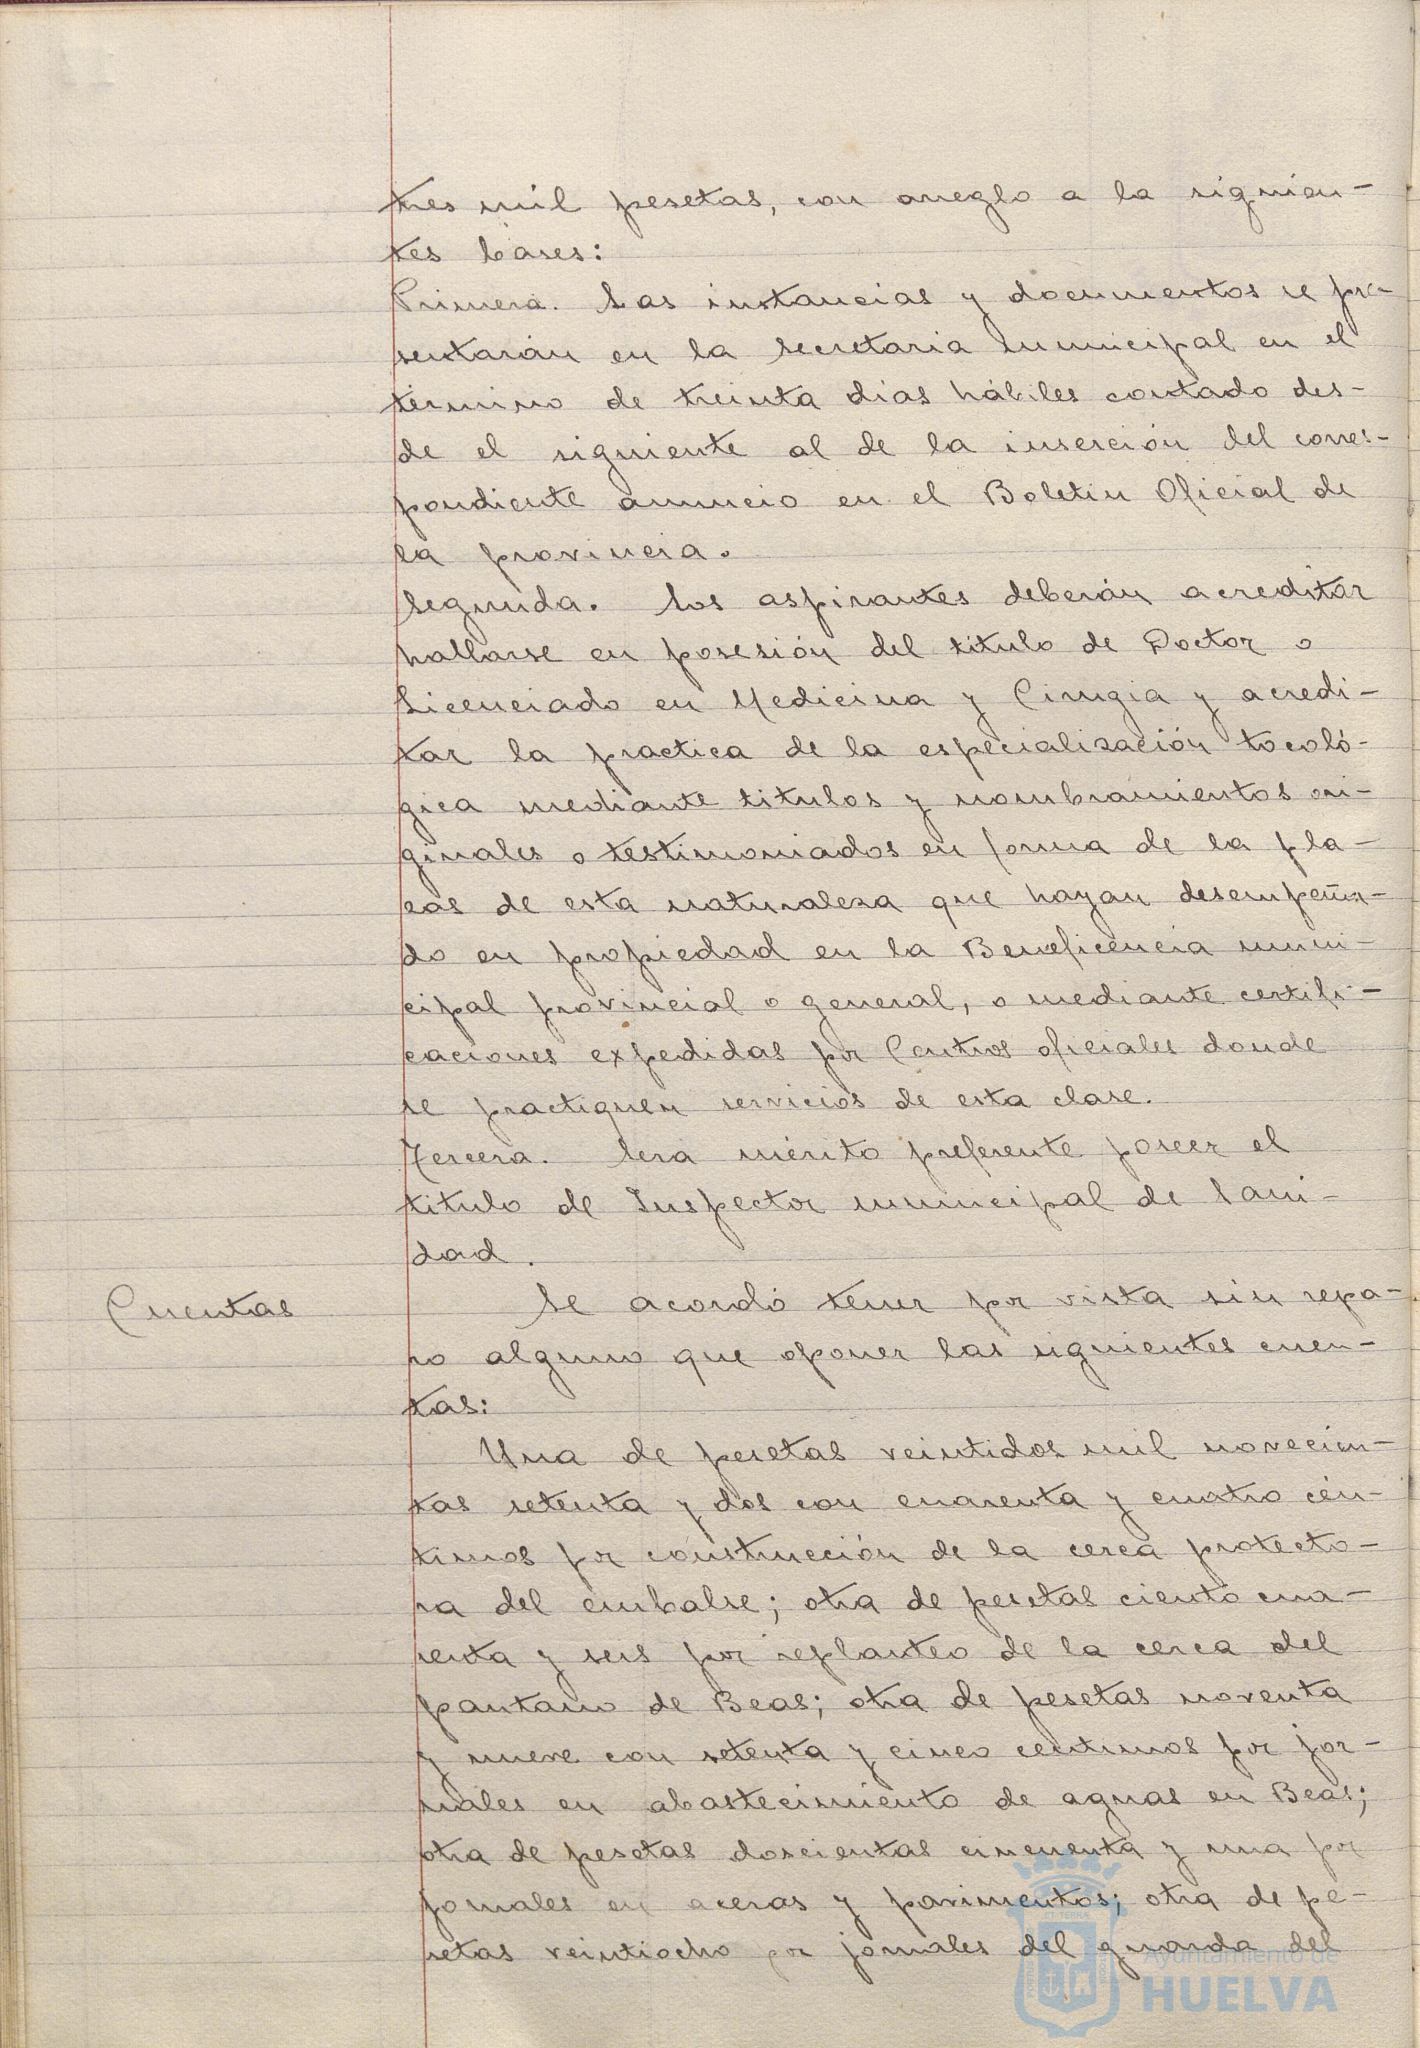 tres mil pesetas, con arreglo a la siguien-
tes bases:
Primera. Las instancias y documentos se pre-
sentarán en la secretaria municipal en el
término de treinta días hábiles contado des-
de el siguiente al de la inserción del corres-
pondiente anuncio en el Boletin Oficial de
la provincia.
Segunda. Los aspirantes deberán acreditar
hallarse en posesión del titulo de Doctor o
Licenciado en Medicina y Cirugia y acredi-
tar la practica de la especialización tocoló-
gica mediante titulos y nombramientos ori-
ginales o testimoniados en forma de la pla-
zas de esta naturaleza que hayan desempeña-
do en propiedad en la Beneficencia muni-
cipal provincial o general, o mediante certifi-
caciones expedidas por Centros oficiales donde
se practiquen servicios de esta clase.
Tercera. Sera mérito preferente poseer el
titulo de Inspector municipal de Sani-
dad.
Cuentas
Se acordó tener por vista sin repa-
ro alguno que oponer las siguientes cuen-
tas:
Una de pesetas veintidos mil novecien-
tas setenta y dos con cuarenta y cuatro cén-
timos por construcción de la cerca protecto-
ra del embalse; otra de pesetas ciento cua-
renta y seis por replanteo de la cerca del
pantano de Beas; otra de pesetas noventa
y nueve con setenta y cinco centimos por jor-
nales en abastecimiento de aguas en Beas;
otra de pesetas doscientas cincuenta y una por
jornales en aceras y pavimentos; otra de pe-
setas veintiocho por jornales del guarda del
Ayuntamiento de
HUELVA